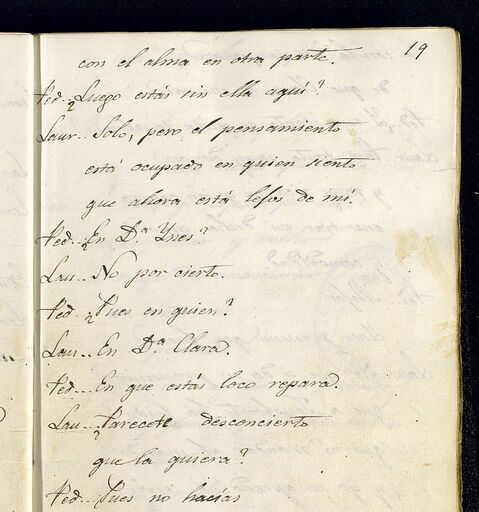 19
con el alma en otra parte.
Ped... ¿Luego estás sin ella aquí?
Laur.. Solo, pero el pensamiento
está ocupado en quien siento
que ahora está lejos de mí.
Ped... ¿En D.ª Ynes?
Lau... No por cierto.
Ped... ¿Pues en quien?
Lau... En D.ª Clara.
Ped... En que estás loco repara.
Lau... ¿Parecete desconcierto
que la quiera?
Ped... Pues no hacías